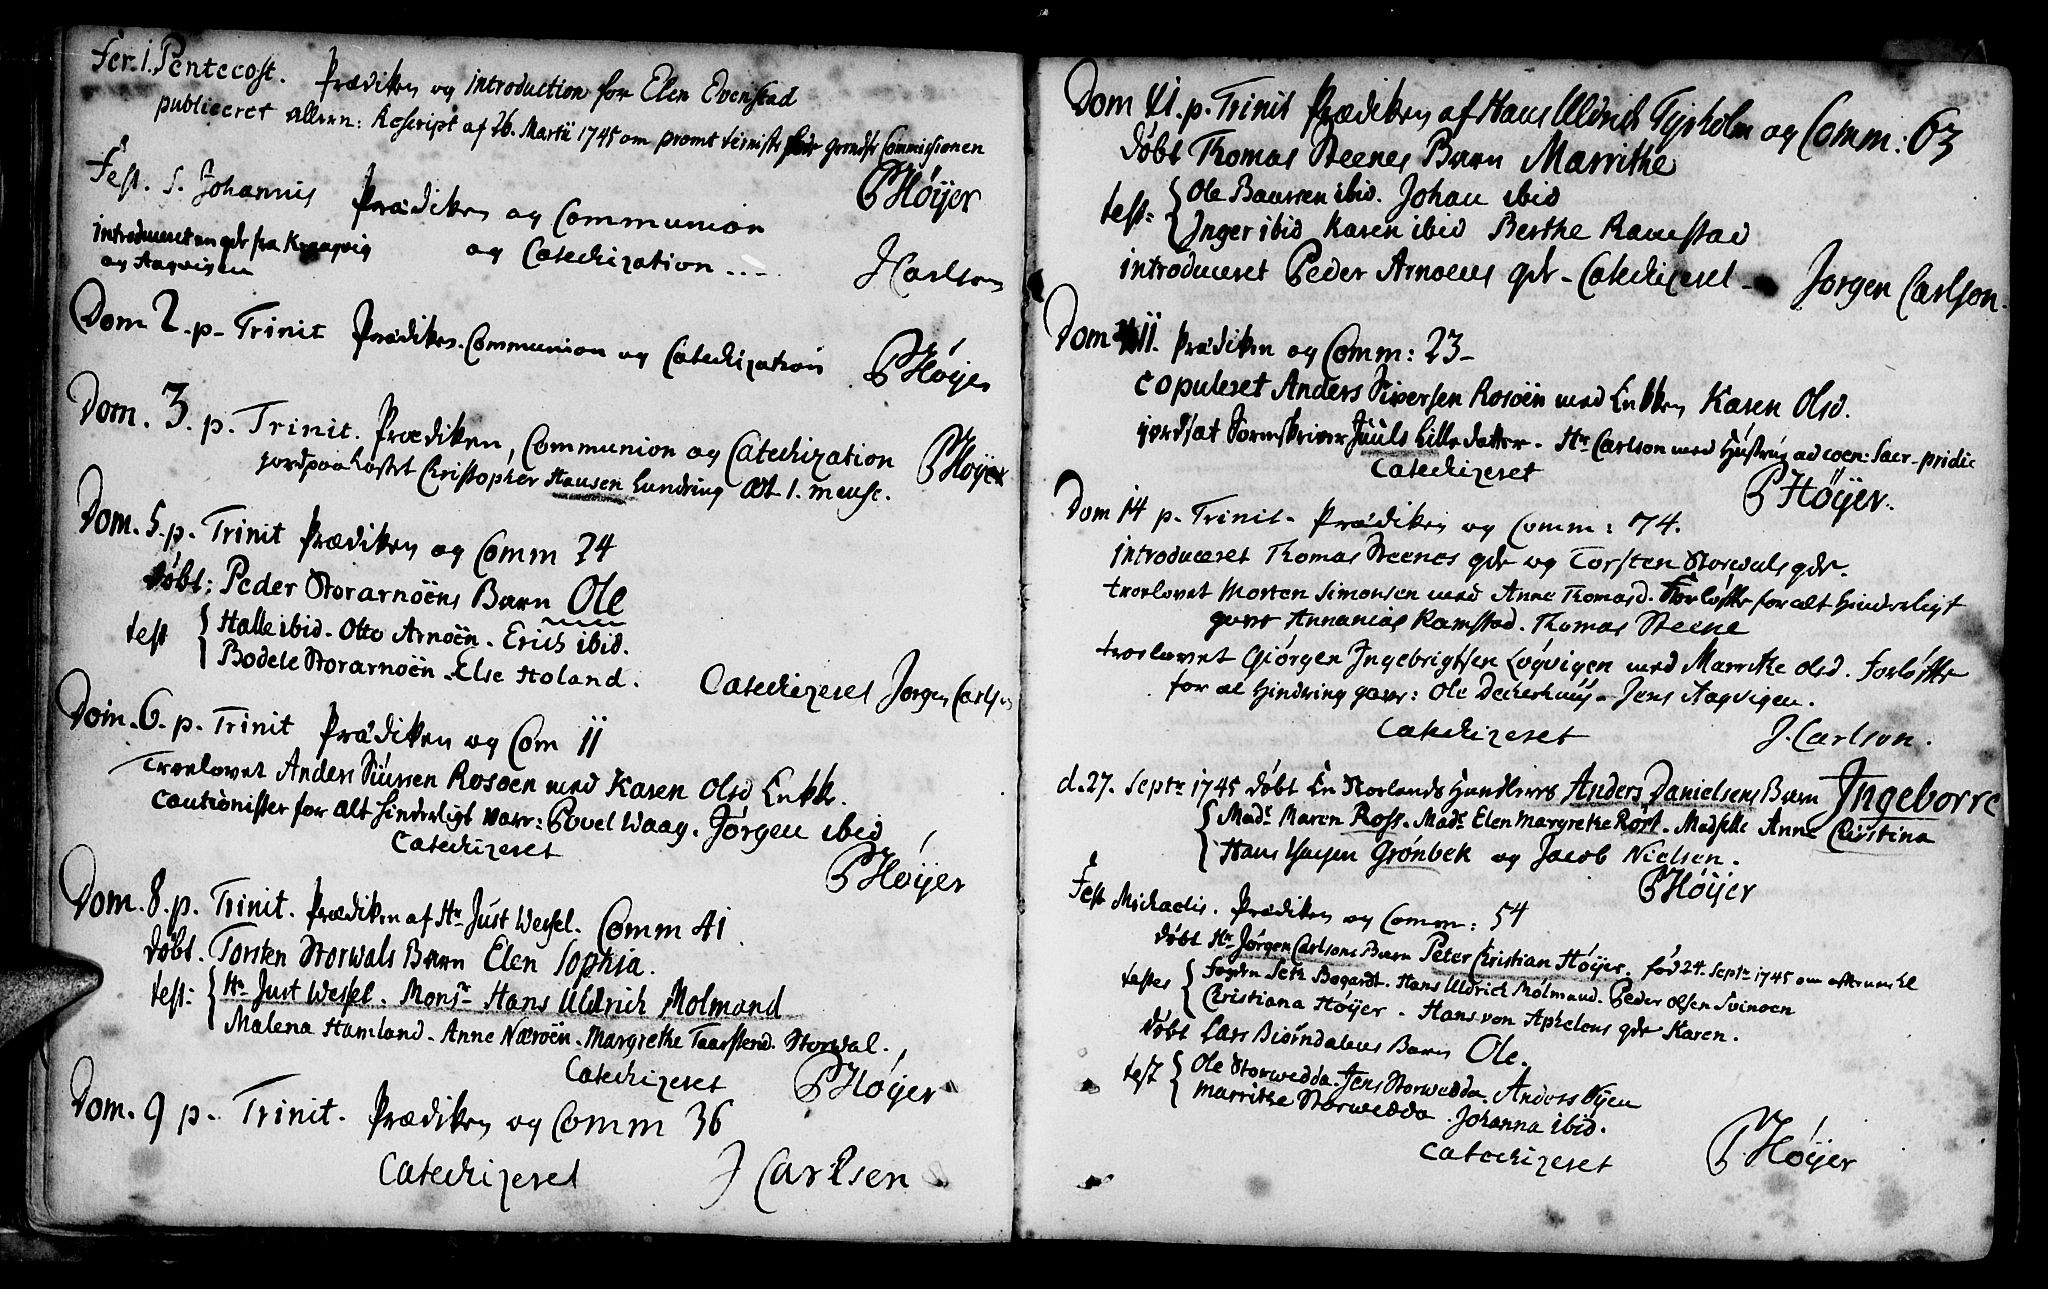 Fer. 1. Pentecost. Prædiken og introduction for Elen Evenstad
publiceret allern: Rescript af 26. Martii 1745 om promt
Commissionen
PHøyer
Fest. S. Johannis Prædiken og Communion
introduceret en qde fra Kraagvig og Catechization ...
og Aagvigen
J Carlson
Dom 2. p. Trinit Prædiken. Communion og Catechization
PHøyer
Dom. 3. p. Trinit. Prædiken, Communion og Catechization
jordpaakastet Christopher Hansen Lundring æt 1. mense.
PHøyer
Dom. 5. p. Trinit Prædiken og Comm 24
døbt: Peder Storarnøens Barn Ole
test { Halle ibid. Otto Arnøen. Erich ibid.
Bodele Storarnøen. Else Holand.
Catechizeret Jørgen Carlson
Dom. 6. p. Trinit Prædiken og Com 11
Troelovet Anders Siursen Rosøen med Karen Olsd Enkk.
Cautionister for alt hinderligt vare: Povel Waag. Jørgen ibid
Catechizeret
PHøyer
Dom. 8. p. Trinit. Prædiken af Hr Just Wessel. Comm 41
døbt. Torsten Storwals Barn Elen Sophia.
test: { Hr Just Wessel. Monsr Hans Uldrich Molmand
Malena Hamland. Anne Nærøen. Margrethe Storwal.
Catechizeret PHøyer
Dom. 9 p. Trinit. Prædiken og Comm 36
Catechizeret J Carlsen
Dom XI. p. Trinit Prædiken af Hans Uldrich Typholm og Comm: 63
døbt Thomas Steenes Barn Marrithe
test: { Ole ibid. Johan ibid
Inger ibid Karen ibid Berthe Ramstad
introduceret Peder Arnøens qde - Catechizeret -
Jørgen Carlson.
Dom Prædiken og Comm: 23 -
copuleret Anders Siversen Rosøen med Enkken Karen Olsd.
jordsat Sorenskriver Juuls lille datter. Hr Carlson med Hustrue ad coen: Sacr - pridie
Catechizeret
PHøyer.
Dom 14 p. Trinit. Prædiken og Comm: 74.
introduceret Thomas Steenes qde og Torsten Storwals qde.
troelovet Morten Simonsen med Anne Thomasd. Forløfte for alt hinderligt
gave Annanias Ramstad. Thomas Steene
troelovet Giørgen Ingebrigtsen Løgvigen med Marrithe Olsd. Forløfte
for al Hindring gave: Ole Deckerhuus - Jens Aagvigen.
Catechizeret J. Carlson.
d. 27. Septr 1745 døbt En Norlands Handlers Anders Danielsens Barn Ingeborre
{ Made Maren Ross. Made Elen Margrethe Rost. Madselle Anne Christina
Hans Grønbek og Jacob Nielsen.
PHøyer
Fest Michaelis. Prædiken og Comm: 54
døbt Hr Jørgen Carlsons Barn Peter Christian Høyer. fød 24. Septr 1745 om
testes { Fogden Seth Bogardt. Hans Uldrich Mølmand. Peder Olsen Svinøen
Christiana Høyer. Hans von Aphelens qde Karen.
døbt Lars Biørndalens Barn Ole.
test { Ole Storwedda. Jens Storwedda. Anders
Marrithe Storwedda. Johanna ibid.
Catechizeret PHøyer